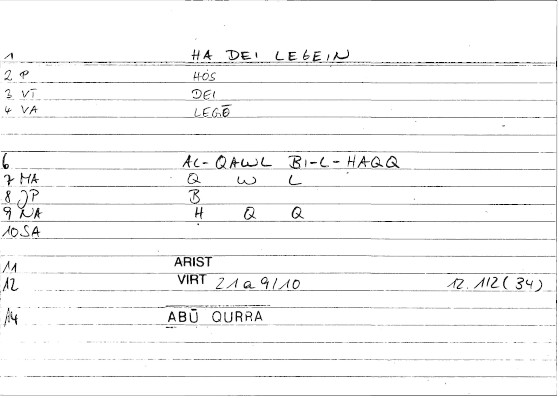 1 HA DEI LEGEIN
2 P HOS
3 VT DEI
4 VA LEGŌ
6 AL-QAWL BI-L-HAQQ
7 MA Q W L
8 JP B
9 NA H Q Q
10 SA
11 ARIST
12 VIRT 21a9/10 12.112(34)
14 ABŪ QURRA